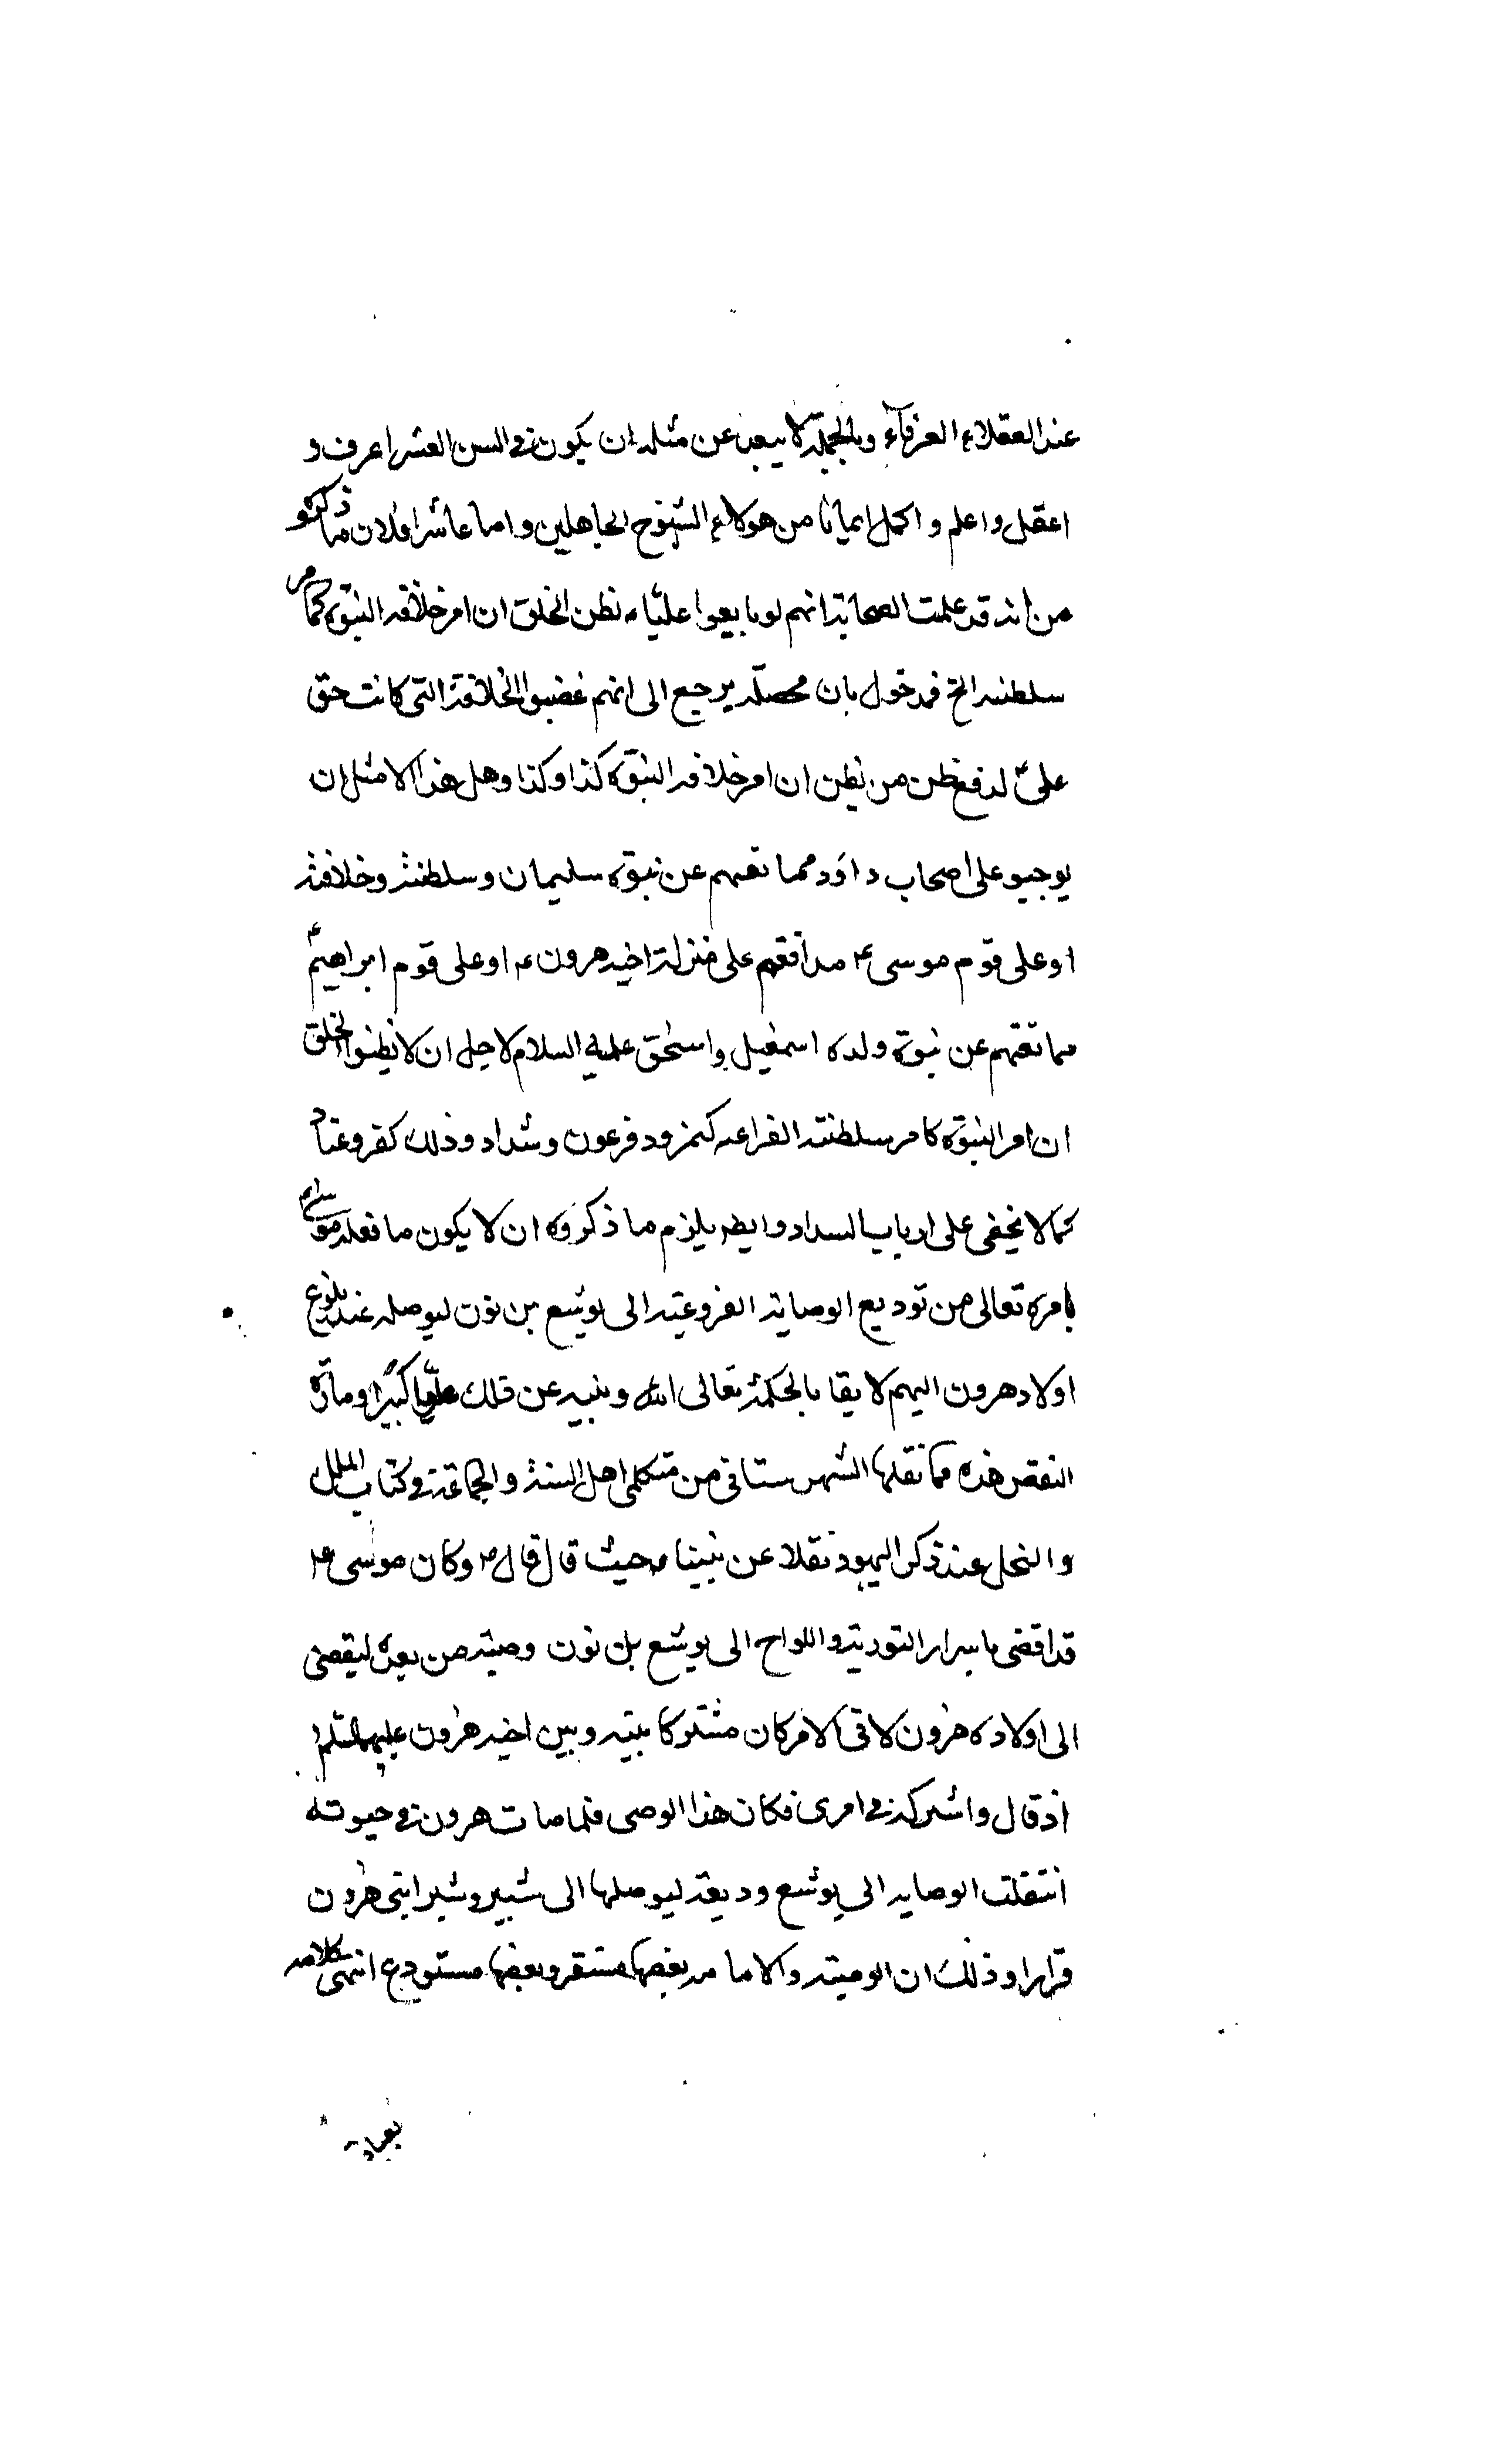 عند العقلاء العرفاء وبالجملة لا يبعد عن مثله ان يكون في السن العشر اعرف و
اعقل واعلم و اكمل ايمانا من هولاء الشيوخ الجاهلين واما عاشرا فلان ما ذكره
من انه قد علمت الصحابة انهم لو بايعوا عليّا ء نظن الخلق ان امر خلافه النبوة كما مر
سلطنه الخ فمدخول بان محصله يرجع الى انهم غضبوا الخلافة التى كانت حق
علىّ لدفع ظن من يظن ان امر خلافه النبوة كذا وكذا وهل هذا الا مثل ان
يوجبو على اصحاب داود ممانعهم عن نبوة سليمان وسلطنته وخلافته
او على قوم موسى ع مدافعهم على منزلة اخيه هرون ع او على قوم ابراهيم ع
ممانعهم عن نبوة ولده اسمعيل واسحق عليه السلام لاجل ان لا يظنوا الخلق
ان امر النبوة كامر سلطنته الفراعه كنمرود فرعون وشداد وذلك كفر وعناد
كما لا يخفى على ارباب السداد وايضا يلزم ما ذكروه ان لا يكون ما فعله موسى
بامره تعالى من توديع الوصاية الفروعيه الى يوشع بن نون ليوصله عند بلوغ
اولاد هرون اليهم لايقا بالحكمة تعالى الله ونبيه عن ذلك علوا كبيرا ومادة
النقض هذه مما نقلها الشهرستانى من متكلمى اهل السنة والجماعة في كتاب الملل
والنحل عند ذكر اليهود نقلا عن نبينا ص حيث قال قال ص وكان موسى ع
قد افضى باسرار التورية واللواح الى يوشع بن نون وصيه من بعده ليفضى
الى اولاده هرون لانّ الامر كان مشتركا بينه وبين اخيه هرون عليهما السلام
اذ قال واشركه في امرى فكان هذا الوصى فلما مات هرون في حيوته
انتقلت الوصايه الى يوشع وديعة ليوصلها الى شبير وشبر ابنى هرون
قرارا وذلك ان الوصية والامامه بعضها مستقر وبعضها مستودع انتهى كلامه